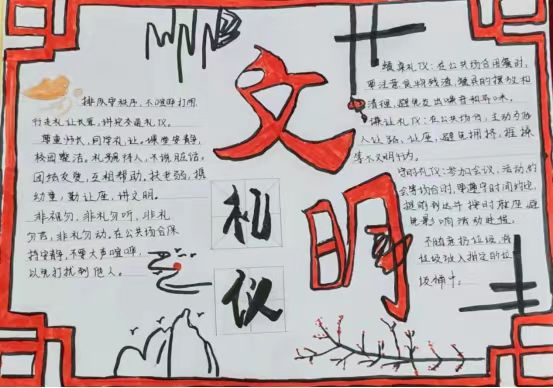 文
明
礼
仪
排队守秩序,不喧哗打闹
行走礼让长辈,讲究交通礼仪。
尊重师长,同学礼让。课堂安静,
校园整洁,礼貌待人,不说脏话。
团结友爱,互相帮助,扶老弱,携
幼童,勤让座,讲文明。
非礼勿,非礼勿听,非礼
勿言,非礼勿动,在公共场合保
持安静,不要大声喧哗,
以免打扰到他人。
餐桌礼仪:在公共场合用餐时,
要注意食物残渣,餐具的摆放和
清理,避免发出噪音和异味。
谦让礼仪:在公共场合,主动为他
人让路、让座,避免拥挤,推搡
等不文明行为。
守时礼仪:参加会议,活动,约
会等场合时,要遵守时间约定,
提前到达并按时离座避
免影响活动进程。
不随意扔垃圾,将
垃圾放入指定的垃
圾桶中。